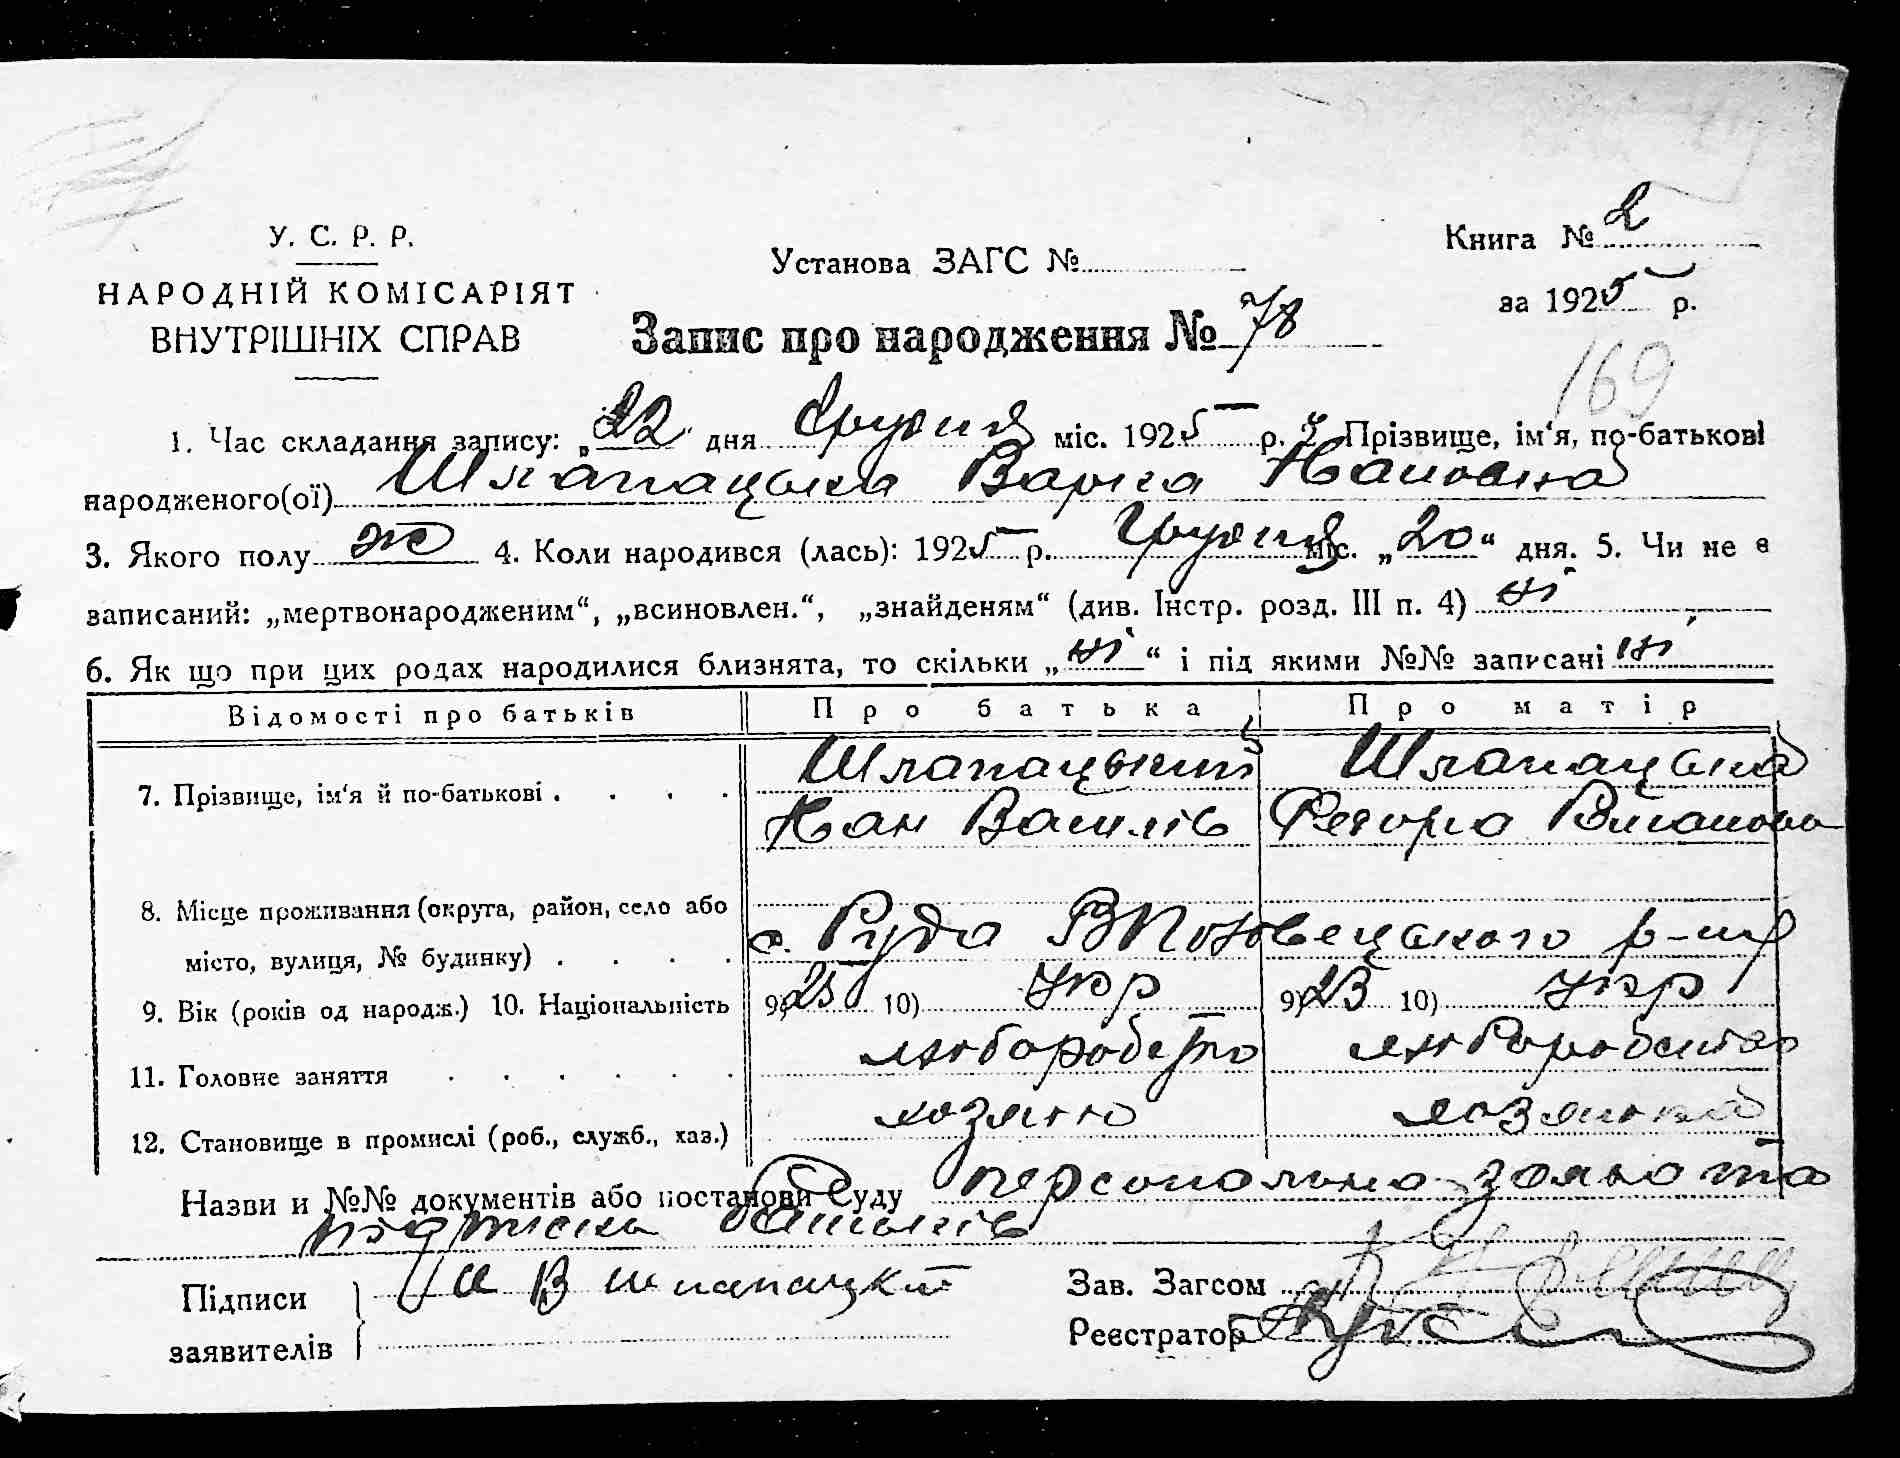 Книга № 2
У. С. Р. Р.
Установа ЗАГС №
НАРОДНІЙ КОМІСАРІЯТ
за 1925 р.
ВНУТРІШНІХ СПРАВ
Запис про народження № 78
169
1. Час складання запису: „22" дня Грудня міс. 1925 р. 2. Прізвище, ім'я, по-батькові
народженого(ої) Шлапацька Варка Иванівна
3. Якого полу ж 4. Коли народився (лась): 1925 р. Грудня міс. „20" дня. 5. Чи не є
записаний: „мертвонародженим", „всиновлен.", „знайденям" (див. Інстр. розд. III п. 4) ні
6. Як що при цих родах народилися близнята, то скільки „ні" і під якими №№ записані ні
Відомості про батьків Про батька Про матір
7. Прізвище, ім'я й по-батькові . . . . Шлапацький Шлапацька
Иван Василів Федора
8. Місце проживання (округа, район, село або
місто, вулиця, № будинку) . . . . с. Руда р-ну
9. Вік (років од народж.) 10. Національність 9) 25 10) Укр 9) 23 10) Укр
11. Головне заняття . . . . . . хлібороб
12. Становище в промислі (роб., служб., хаз.) хозяїн хозяйка
Назви и №№ документів або постанови Суду персональна заява та
підписка батьків
Підписи И В Шлапацкій Зав. Загсом
заявителів Реєстратор